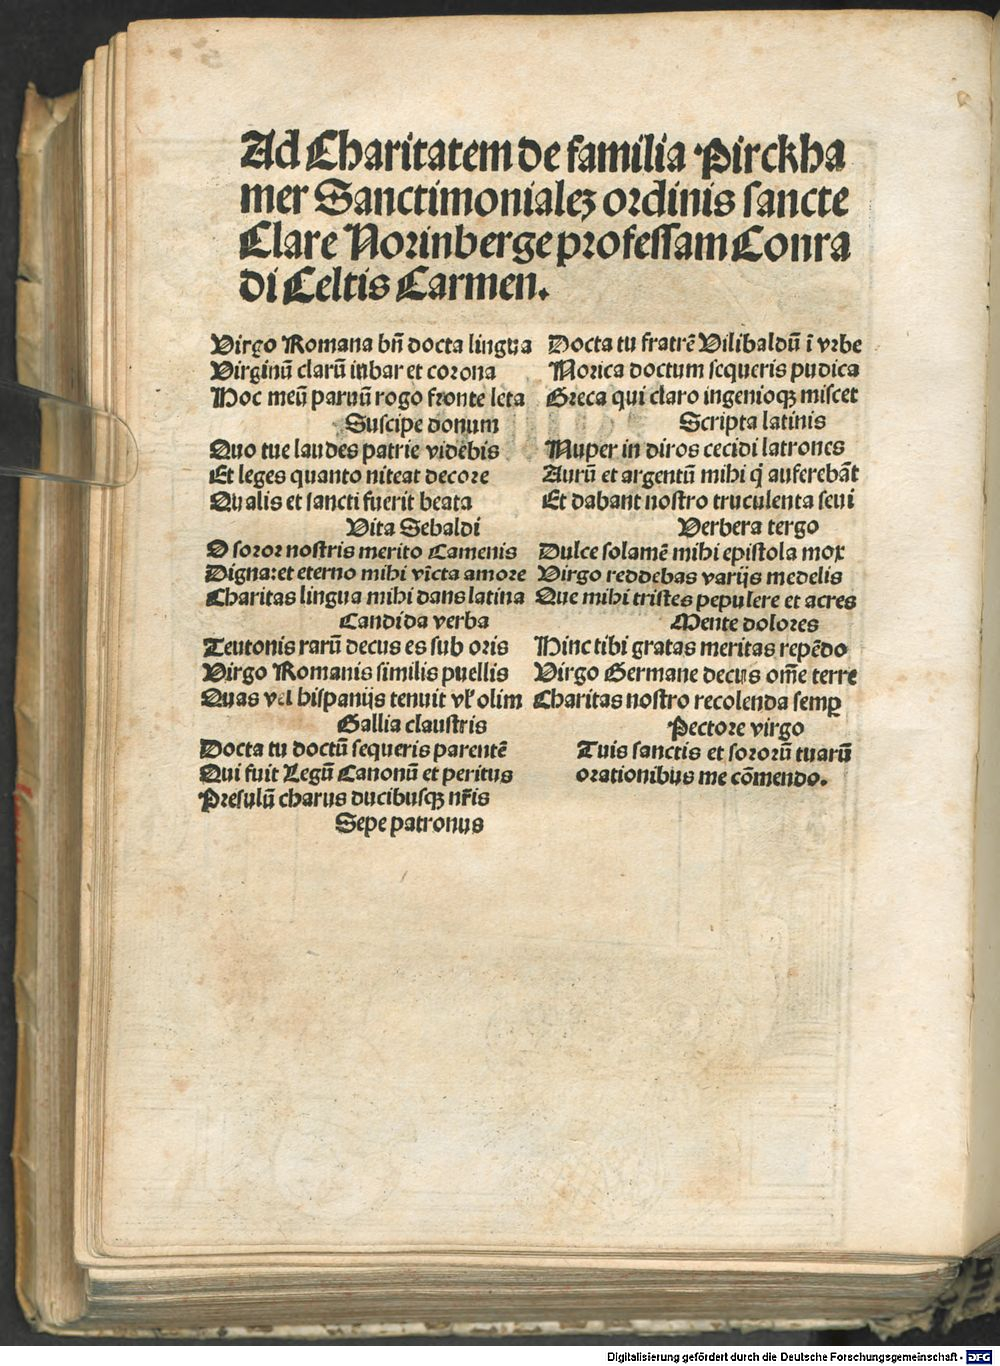 Ad Charitatem de familia Pirckha
mer Sanctimonialeꝫ ordinis sancte
Clare Norinberge professam Conra
di Celtis Carmen.
Virgo Romana bn̄ docta lingua
Virginū clarū iubar et corona
Hoc meū paruū rogo fronte leta
Suscipe donum
Quo tue laudes patrie vidēbis
Et leges quanto niteat decore
Qualis et sancti fuerit beata
Vita Sebaldi
O soror nostris merito Camenis
Digna: et eterno mihi vīcta amore
Charitas lingua mihi dans latina
Candida verba
Teutonis rarū decus es sub oris
Virgo Romanis similis puellis
Quas vel hispanijs tenuit vl̕ olim
Gallia claustris
Docta tu doctū sequeris parentē
Qui fuit Legū Canonū et peritus
Presulū charus ducibusqꝫ nr̄is
Sepe patronus
Docta tu fratrē Vilibaldū ī vrbe
Norica doctum sequeris pudica
Greca qui claro ingenioqꝫ miscet
Scripta latinis
Nuper in diros cecidi latrones
Aurū et argentū mihi q̇ auferebāt
Et dabant nostro truculenta seui
Verbera tergo
Dulce solamē mihi epistola mox
Virgo reddebas varijs medelis
Que mihi tristes pepulere et acres
Mente dolores
Hinc tibi gratas meritas repēdo
Virgo Germane decus om̄e terre
Charitas nostro recolenda semꝑ
Pectore virgo
Tuis sanctis et sororū tuarū
orationibus me cōmendo.
Digitalisierung gefördert durch die Deutsche Forschungsgemeinschaft - DFG